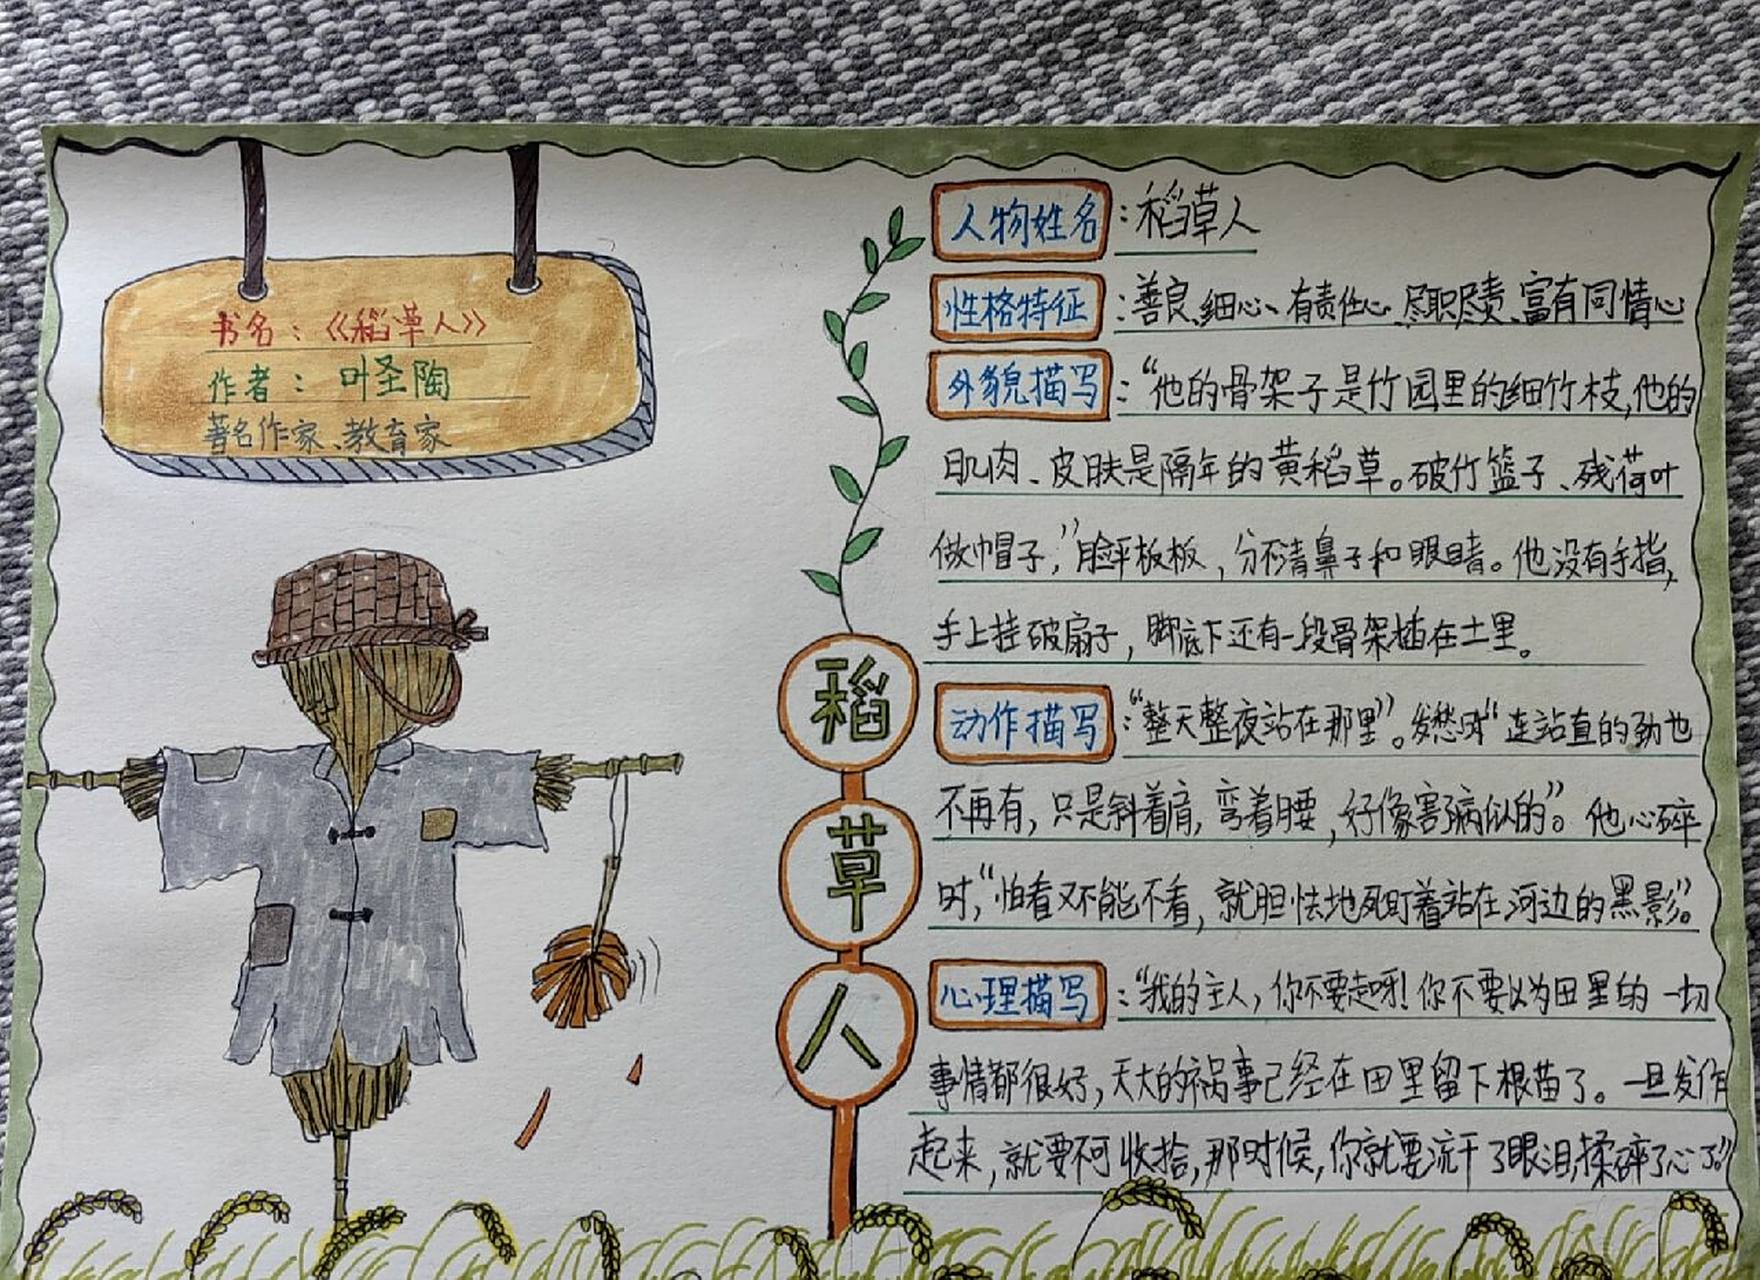 书名：《稻草人》
作者：叶圣陶
著名作家、教育家
稻
草
人
人物姓名：稻草人
性格特征：善良、细心、有责任心、尽职尽责、富有同情心
外貌描写：“他的骨架子是竹园里的细竹枝，他的
肌肉、皮肤是隔年的黄稻草。破竹篮子、残荷叶
做帽子；”脸平板板，分不清鼻子和眼睛。他没有手指，
手上挂破扇子，脚底下还有一段骨架插在土里。
动作描写：“整天整夜站在那里”。发愁时“连站直的劲也
不再有，只是斜着肩，弯着腰，好像害病似的”。他心碎
时，“怕看又不能不看，就胆怯地死盯着站在河边的黑影”。
心理描写：“我的主人，你不要走呀！你不要以为田里的一切
事情都很好，天大的祸事已经在田里留下根苗了。一旦发作
起来，就要不可收拾，那时候，你就要流干了眼泪，揉碎了心了。”